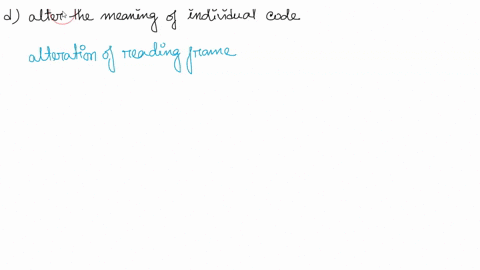 d) alter the meaning of individual code
alteration of reading frame